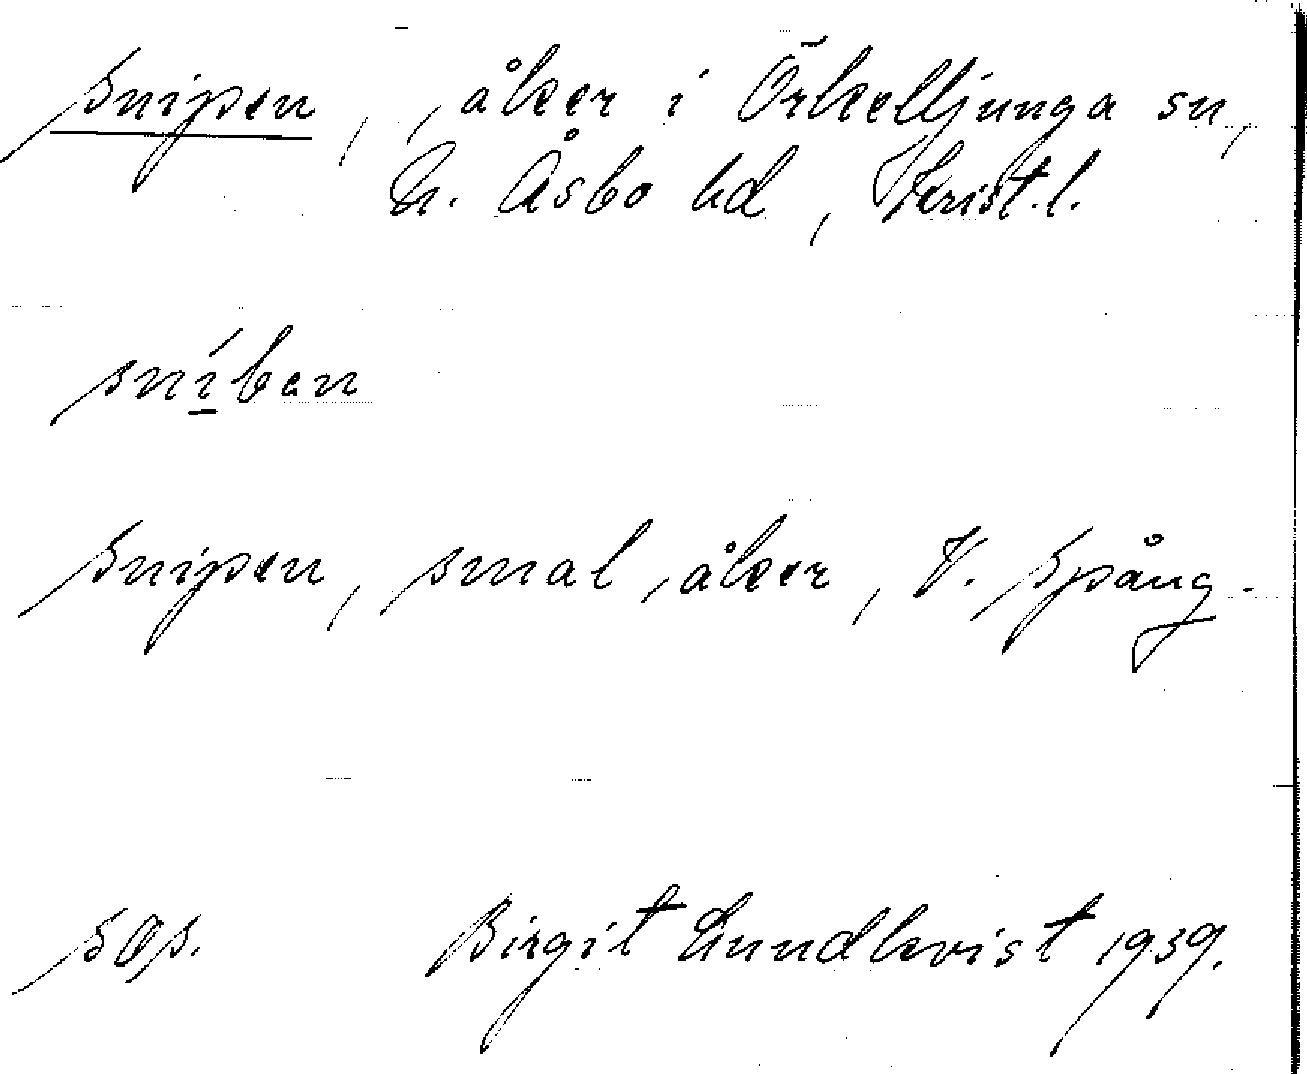 Snipen, åker i Örkelljunga sn,
N. Åsbo hd, Krist.l.
sní̱ban
Snipen, smal åker, V. Spång.
Birgit Lundkvist 1939.